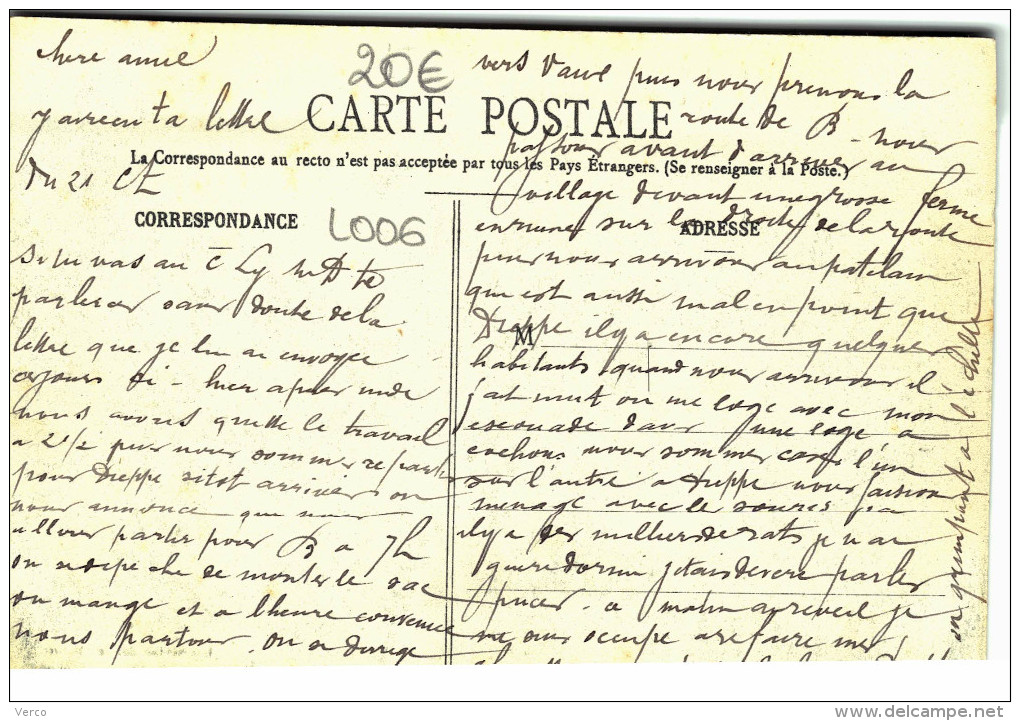 chere amie
j'ai recu ta lettre
du 21 Ct
20€
CARTE POSTALE
La Correspondance au recto n'est pas acceptée par tous les Pays Étrangers. (Se renseigner à la Poste.)
CORRESPONDANCE
L006
ADRESSE
M
si tu vas au C Ly te
parlera sans doute de la
lettre que je lui ai envoyee
ces jours ci - hier apres midi
nous avons quitte le travail
a 2 1/2 puis nous sommes repartis
pour Dieppe sitot arriver on
nous annonce que nous
allons partir pour B a 7h
on se depeche de monter le sac
on mange et a l'heure convenue
nous partons on se dirige
vers Vaux puis nous prenons la
route de B - nous
passons avant d'arriver au
village devant une grosse ferme
en ruines sur la droite de la route
puis nous arrivons au patelain
qui est aussi mal en point que
Dieppe il y a encore quelques
habitants quand nous arrivons il
fait nuit on me loge avec mon
escouade dans une loge a
cochons nous sommes l'un
sur l'autre a Dieppe nous faision
menage avec le souris ici
il y a des milliers de rats je n'ai
guere dormi
puces - a matin au reveil je
me suis occupe a refaire mes
en grimpant a l'échelle
Verco
www.delcampe.net